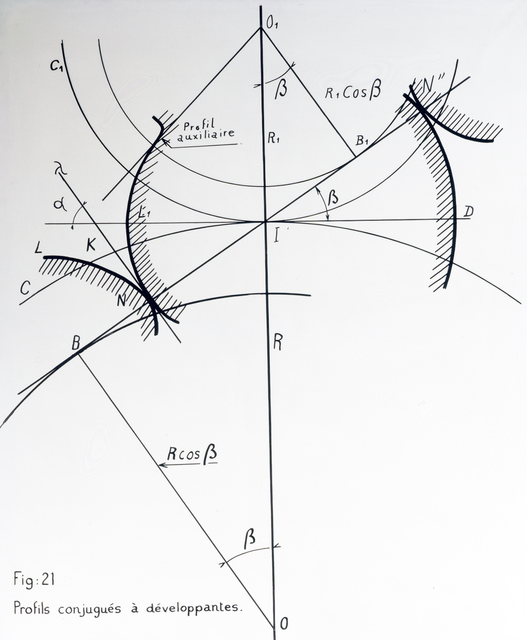 O₁
C₁
β
R₁Cosβ
N"
Profil
auxiliaire
R₁
B₁
λ
α
L₁
β
D
I
L
K
C
N
B
R
Rcosβ
β
O
Fig:21
Profils conjugués à développantes.